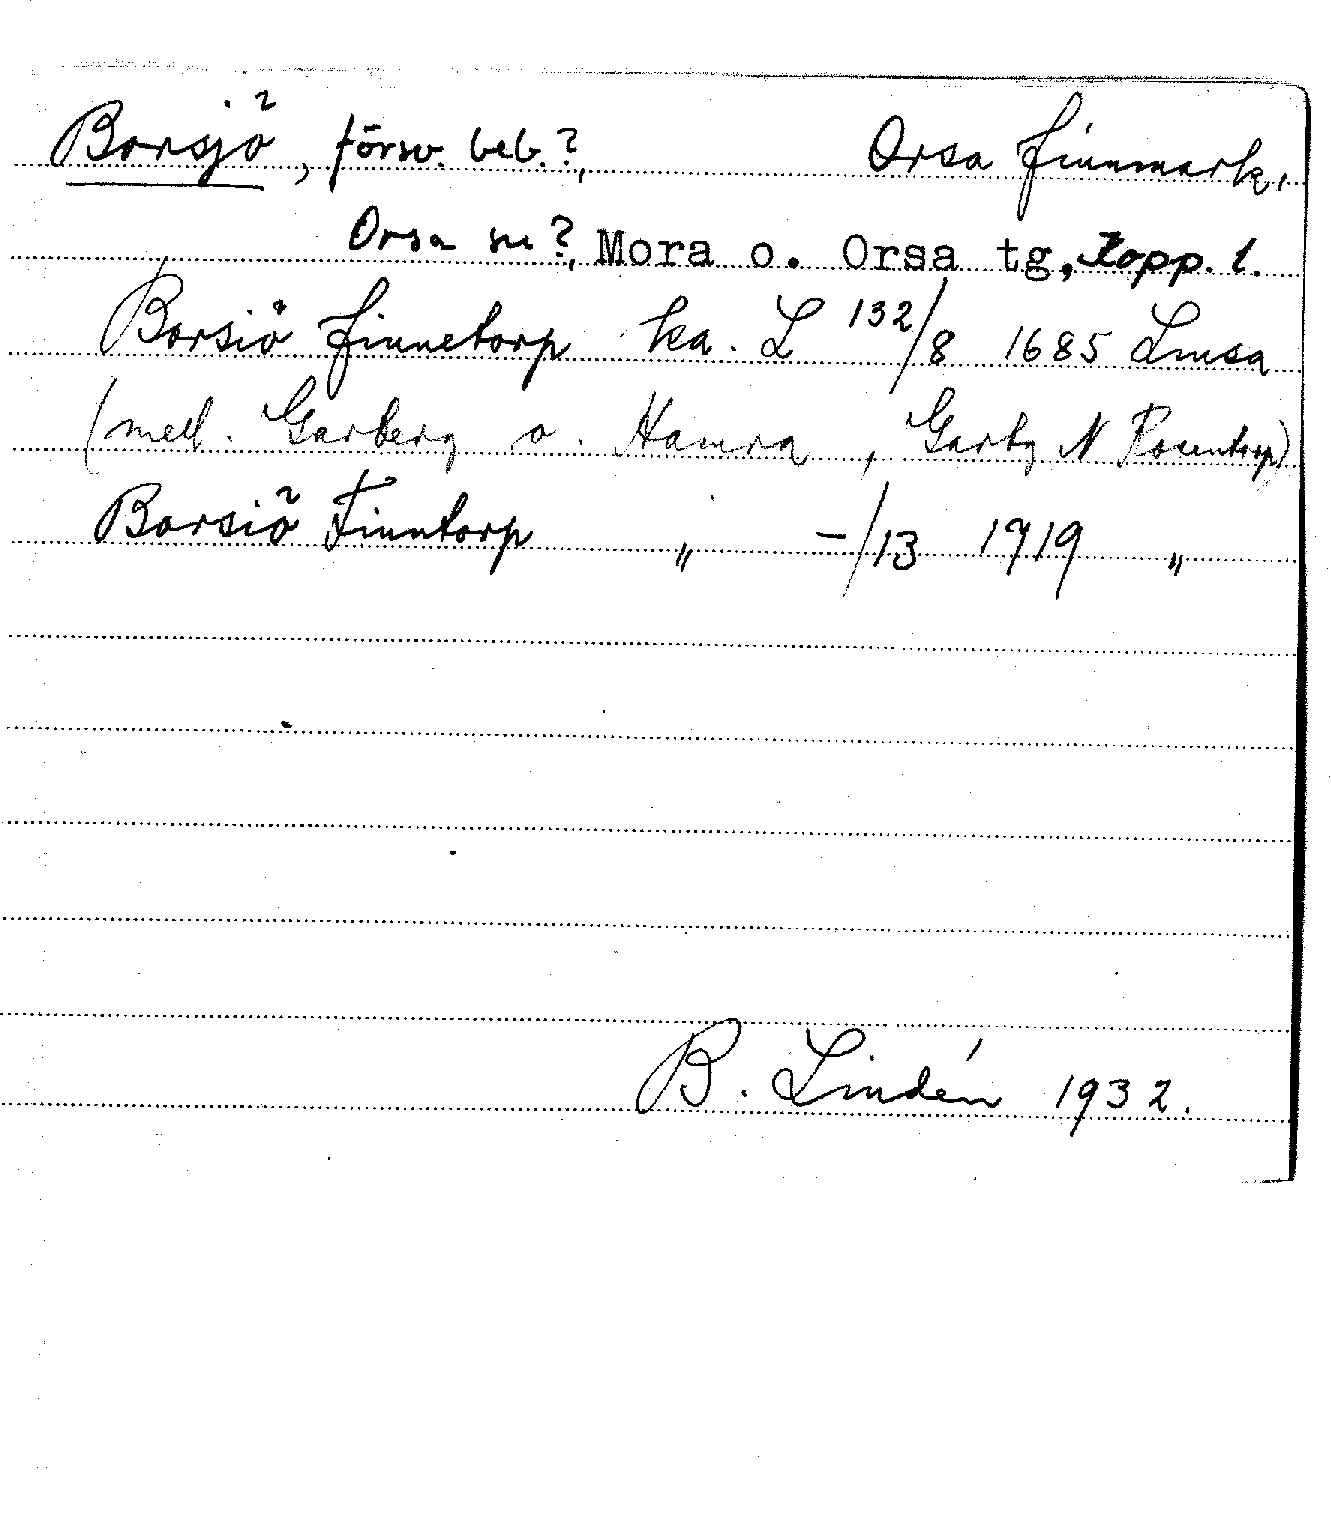 Borsjö, försv. beb.?, Orsa finnmark,
Orsa sn?, Mora o. Orsa tg, Kopp. l.
Borsiö finnetorp ka. L 132/8 1685 Lmsa
(mell. Garberg o. Hamra, Garbg N Rosentorp)
Borsiö Finntorp " -/13 1719 "
B. Lindén 1932.